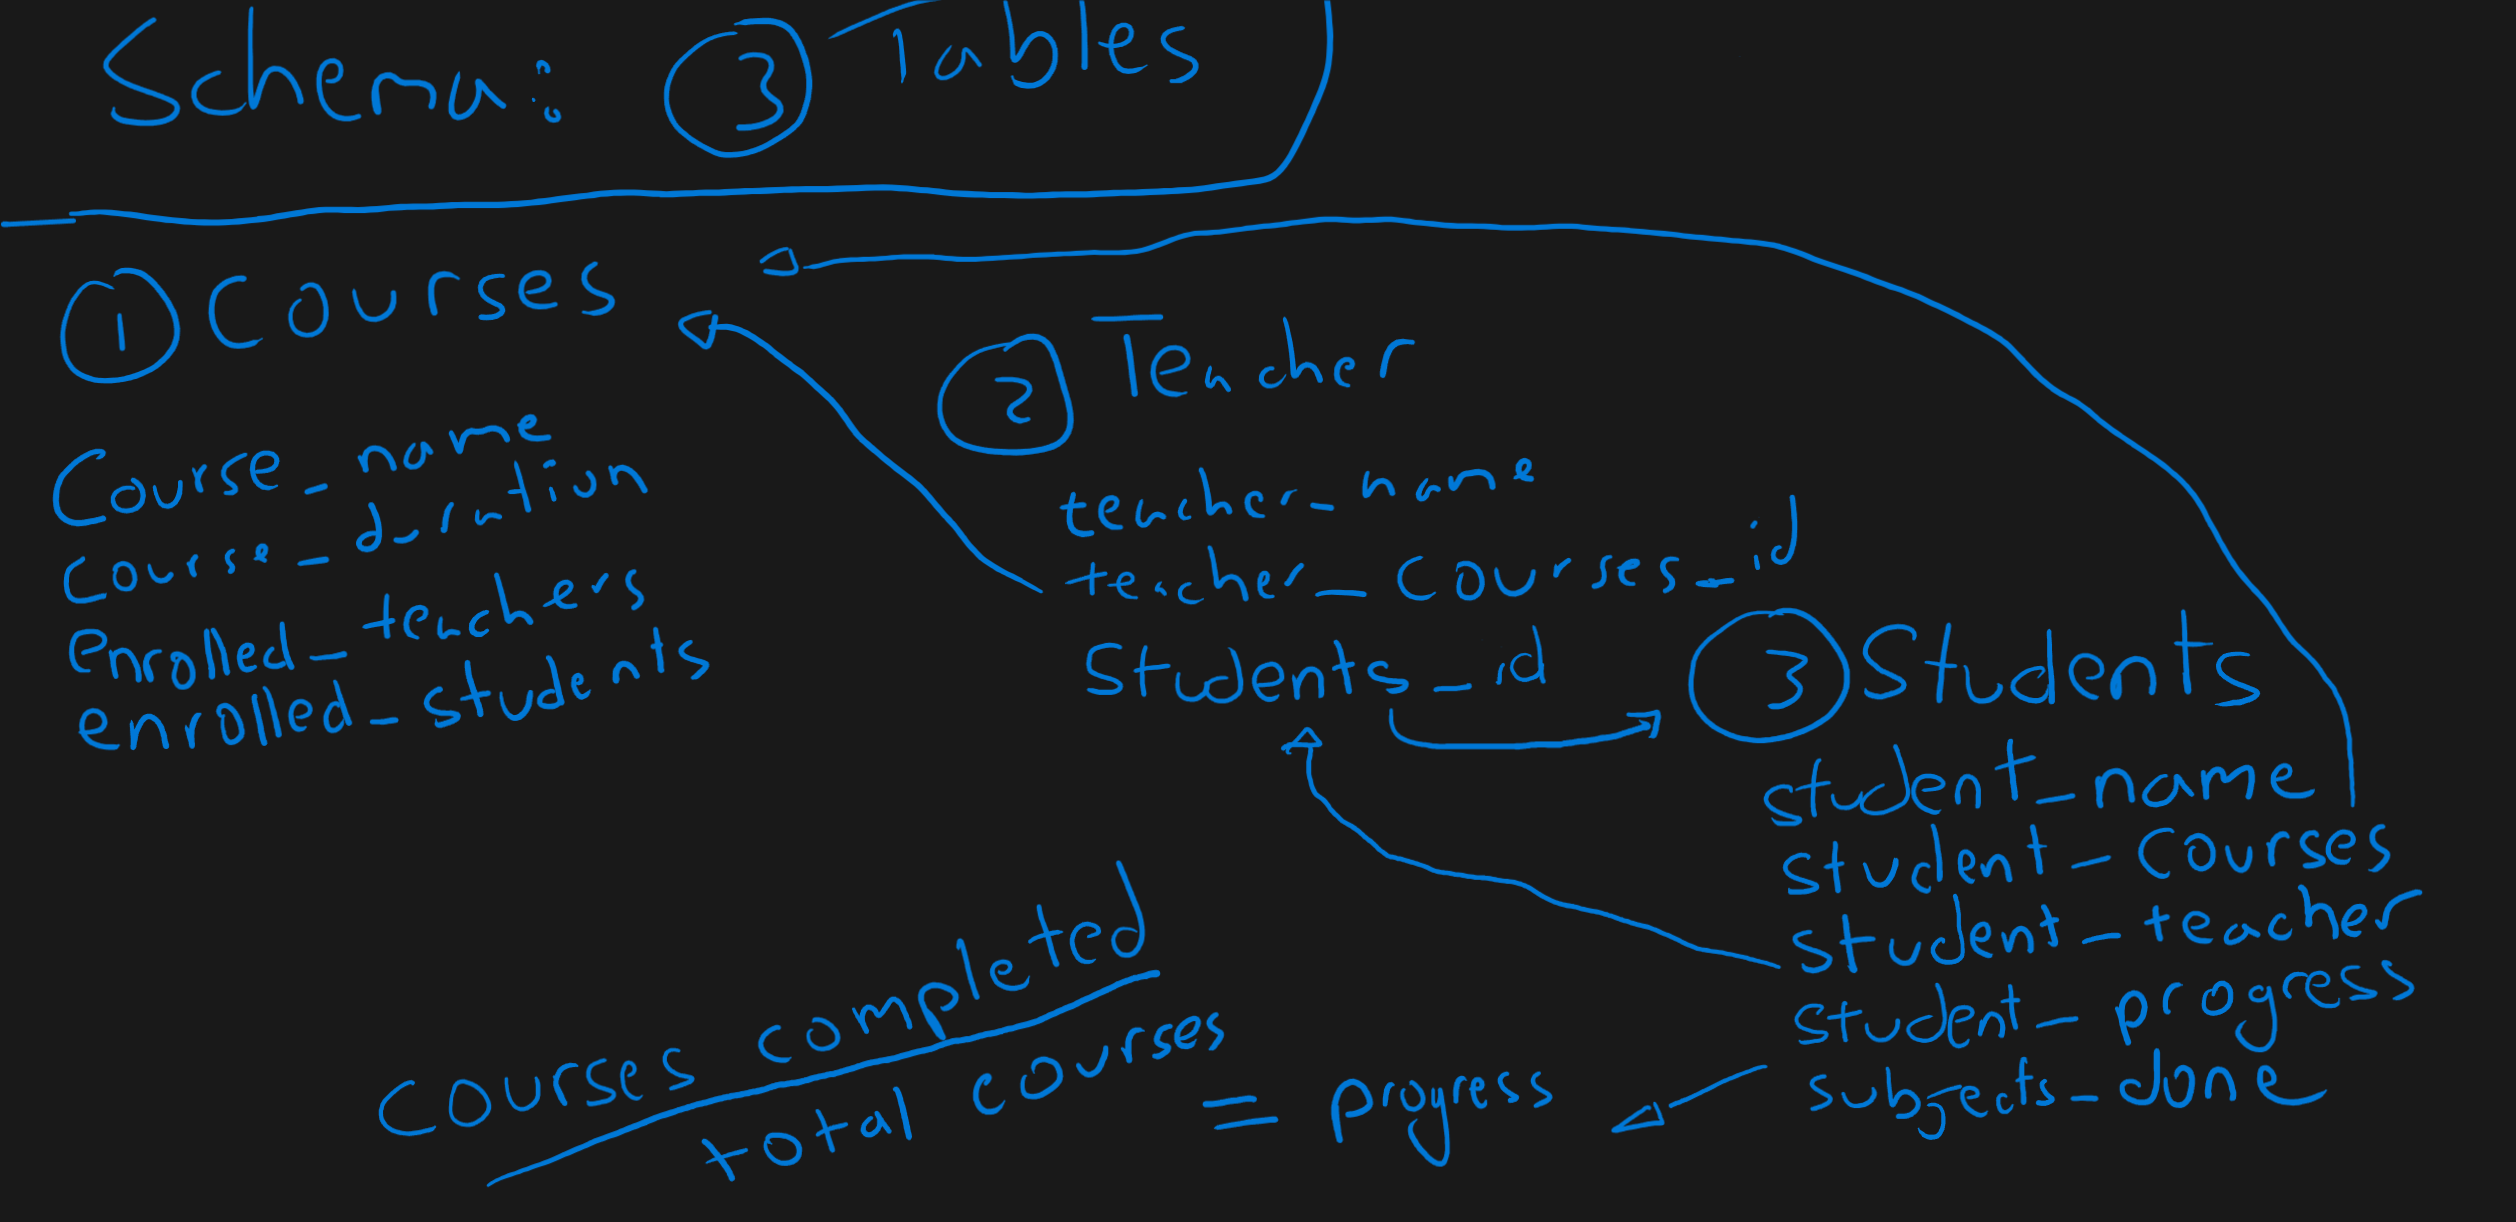 Schema: 3 Tables
1 Courses
Course_name
Course_duration
Enrolled_teachers
enrolled_students
2 Teacher
teacher_name
teacher_courses_id
Students_id
3 Students
student_name
student_courses
student_teacher
student_progress
subjects_done
courses completed
total courses
= progress